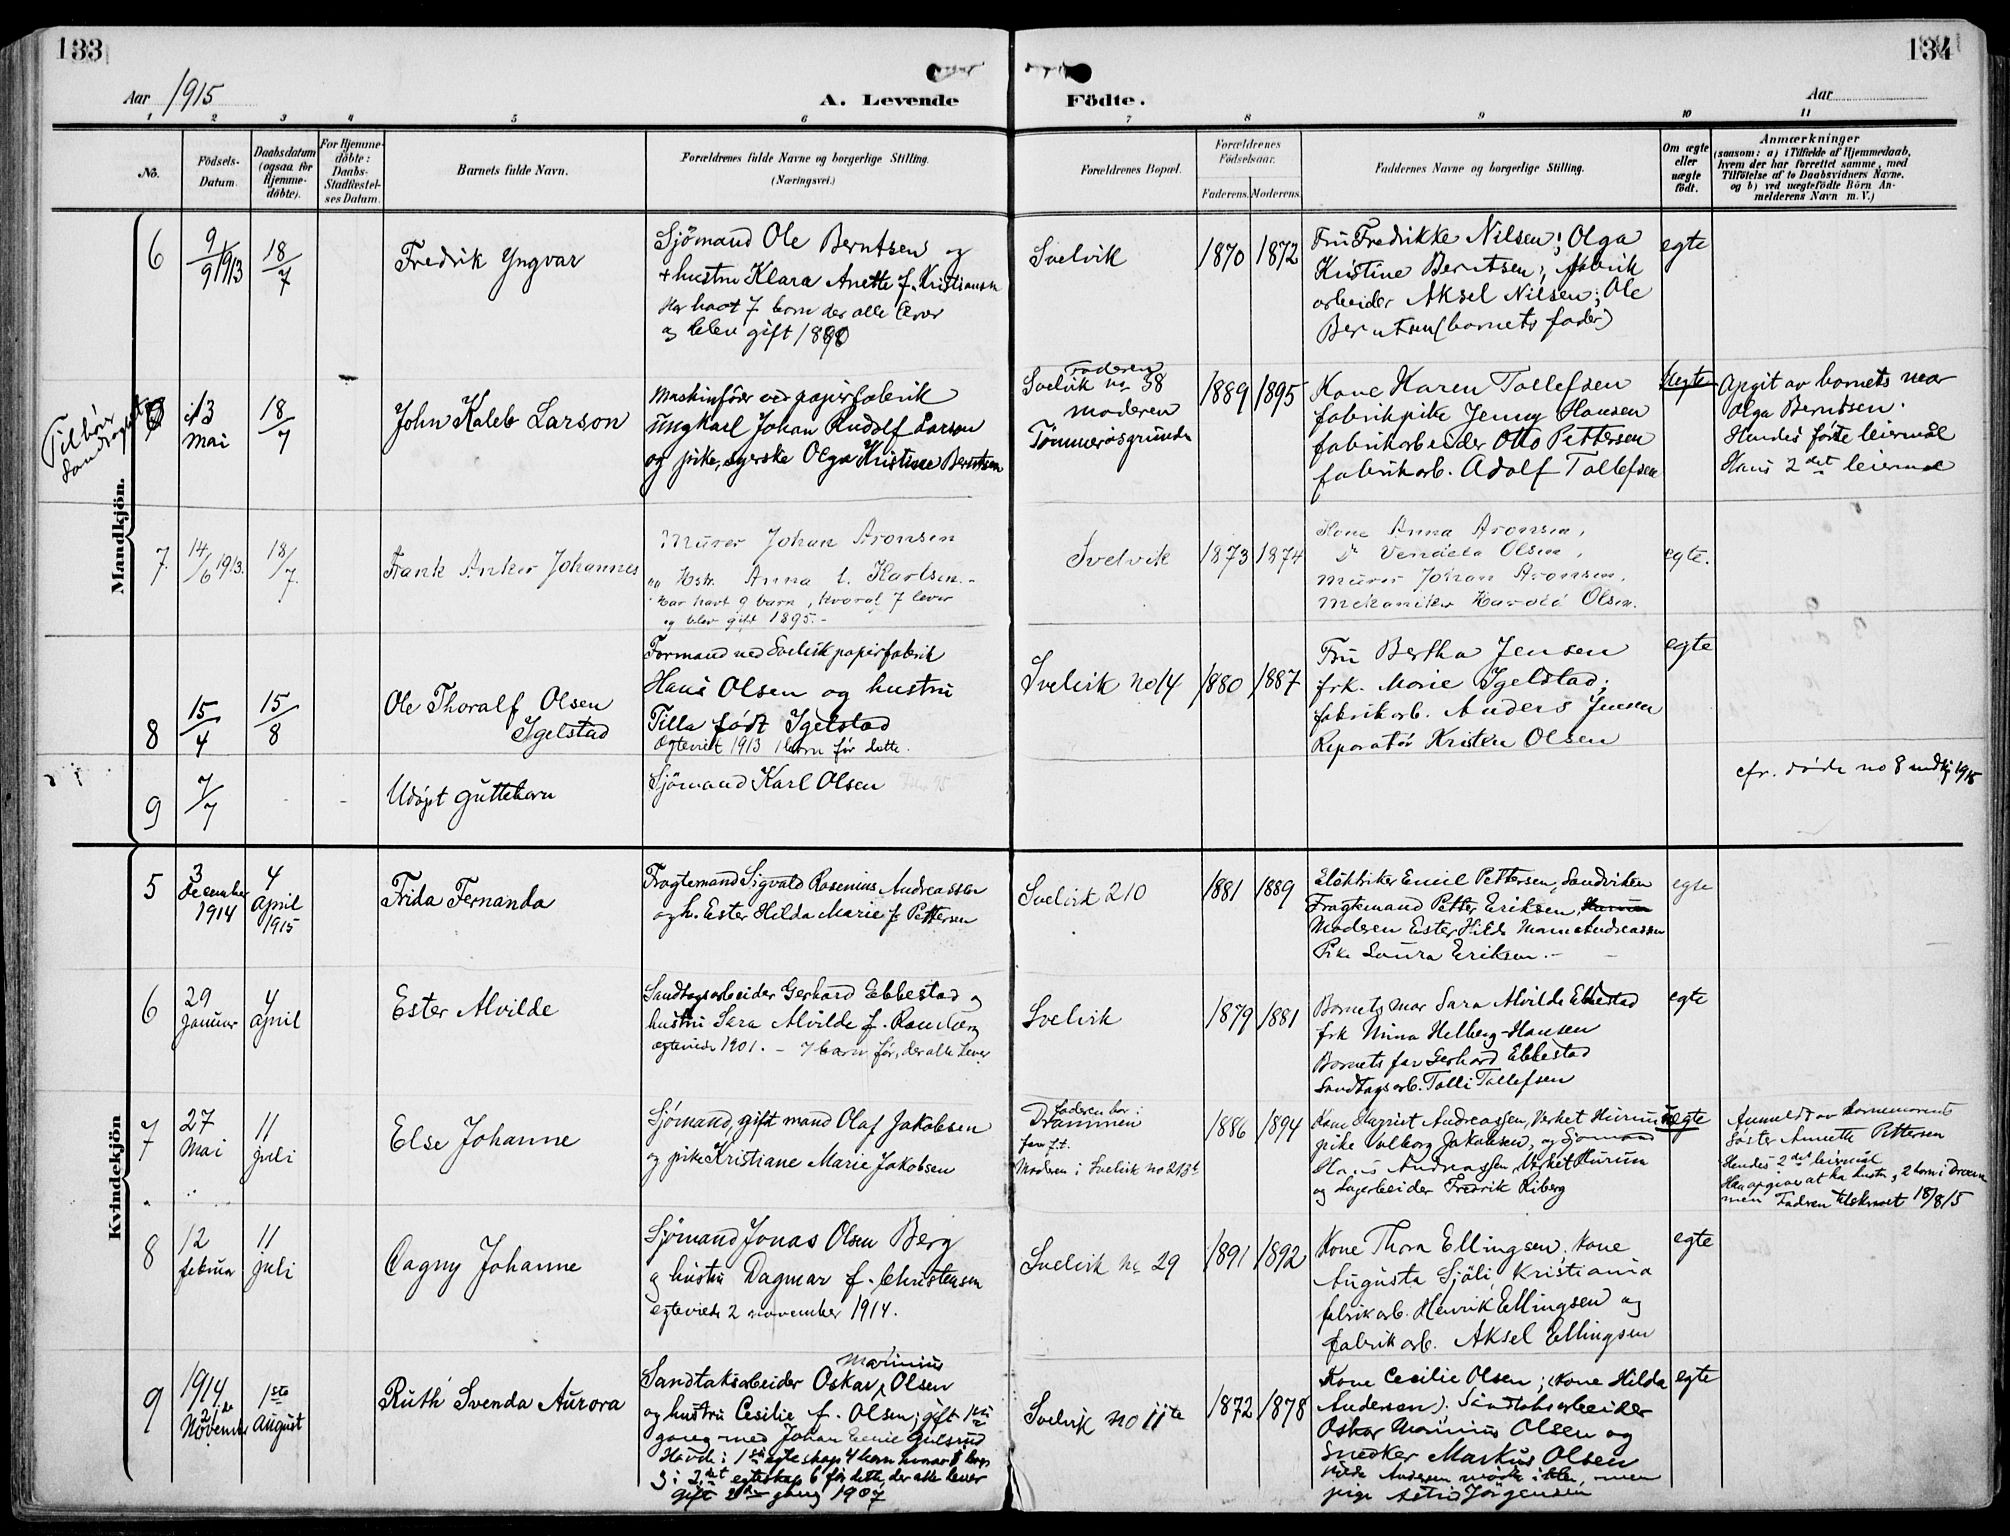 133
134
Aar 1915
A. Levende
Födte.
Aar
1 2 3 4 5 6 7 8 9 10 11
No.
Födsels-Datum.
Daabsdatum (ogsaa för Hjemme-döbte).
For Hjemme-döbte: Daabs-Stadfæstel-ses Datum.
Barnets fulde Navn.
Forældrenes fulde Navne og borgerlige Stilling.
(Næringsvei.)
Forældrenes Bopæl.
Forældrenes Födselsaar.
Faderens. Moderens.
Faddernes Navne og borgerlige Stilling.
Om ægte eller uægte födt.
Anmærkninger
(saasom: a) i Tilfælde af Hjemmedaab,
hvem der har forrettet samme, med
Tilföielse af to Daabsvidners Navne.
og b) ved uægtefödte Börn An-
melderens Navn m. V.)
Mandkjön.
6
9/9 1913
18/7
Fredrik Yngvar
Sjömand Ole Berntsen og
+ hustru Klara Anette f. Kristiansen
Har havt 7 barn der alle lever
og blev gift 1890
Svelvik
1870
1872
Fru Fredrikke Nilsen; Olga
Kristine Berntsen; fabrik
arbeider Aksel Nilsen; Ole
Berntsen (barnets fader)
egte
Tilhører
13
mai
18/7
John Kaleb Larson
Maskinfører ved papirfabrik
Ungkarl Johan Rudolf Larson
og pike, syerske Olga Kristine Berntsen
Faderen
Svelvik no 38
moderen
Tømmeråsgrunden
1889
1895
Kone Karen Tollefsen
fabrikpike Jenny Hansen
fabrikarbeider Otto Pettersen
fabrikarb. Adolf Tollefsen
Uegte
Opgit av barnets mor
Olga Berntsen.
Hendes første leiermål
Hans 2det leiermål
7.
14/6 1913.
18/7.
Frank Anker Johannes
Murer Johan Aronsen
og Hstr. Anna f. Karlsen.
Har havt 9 barn, hvoraf 7 lever
og blev gift 1895.-
Svelvik
1873
1874
Kone Anna Aronsen,
Do Vendela Olsen,
Murer Johan Aronsen,
Mekaniker Harald Olsen.
egte.
8
15/4
15/8
Ole Thoralf Olsen
Igelstad
Formand ved Svelvik papirfabrik
Hans Olsen og hustru
Tilla født Igelstad
Egteviet 1913 1 barn før dette.
Svelvik no 14
1880
1887
Fru Bertha Jensen
frk. Marie Igelstad;
fabrikarb. Anders Jensen
Reparatør Kristen Olsen
egte
9
7/7
Udøpt guttebarn
Sjömand Karl Olsen
cfr. døde no 8 mdkj 1915
Kvindekjön
5
3
december
1914
4
April
1915
Frida Fernanda
Fragtemand Sigvald Rosenius Andreassen
og h. Ester Hilda Marie f. Pettersen
Svelvik 210
1881
1889
Elektriker Emil Pettersen, Sandviken
Fragtemand Petter Eriksen,
Moderen Ester Hilda Marie Andreassen
Pike Laura Eriksen.-
egte
6
29
januar
4
april
Ester Alvilde
Sandtagsarbeider Gerhard Ebbestad og
hustru Sara Alvilde f. Ramberg
egteviede 1901. - 7 barn før, der alle lever
Svelvik
1879
1881
Barnets mor Sara Alvilde Ebbestad
frk Nina Helberg-Hansen
Barnets far Gerhard Ebbestad
Sandtagsarb. Tolli Tollefsen
egte
7
27
mai
11
juli
Else Johanne
Sjømand, gift mand Olaf Jakobsen
og pike Kristiane Marie Jakobsen
Faderen bor i
Drammen
Moderen i Svelvik no 213b
1886
1894
Kone Andreassen, Verket Hurum
pike Valborg Jakobsen, og sjømand
Hans Andreassen, Verket Hurum
og Lagerbeider Fredrik Kiberg
Uegte
Anmeldt av barnemorens
Søster Annette Pettersen
Hendes 2det leiermål
Han opgives at ha hustru, 2 barn i Dram
men Fadren tilskrevet 18/8 15
8
12
februar
11
juli
Dagny Johanne
Sjømand Jonas Olsen Berg
og hustru Dagmar f. Christensen
egteviede 2 november 1914.
Svelvik no 29
1891
1892
Kone Thora Ellingsen, kone
Augusta Sjöli, Kristiania
fabrikarb. Henrik Ellingsen og
fabrikarb. Aksel Ellingsen
egte
9
1914
November
1ste
August
Ruth Svenda Aurora
Marinius
Sandtaksarbeider Oskar Olsen
og hustru Cecilie f. Olsen; gift 1ste
gang med Johan Emil Gulsrud
Havde i 1ste egteskap 4 barn hvorav
3 i 2det egteskap 6 før dette, der alle lever
gift 2den gang 1907
Svelvik no 11te
1872
1878
Kone Cecilie Olsen; (kone Hilda
Andersen). Sandtaksarbeider
Oskar Marinius Olsen og
Snedker Markus Olsen
Hilda Andersen møtte ikke, men
pige Astrid Jörgensen
egte